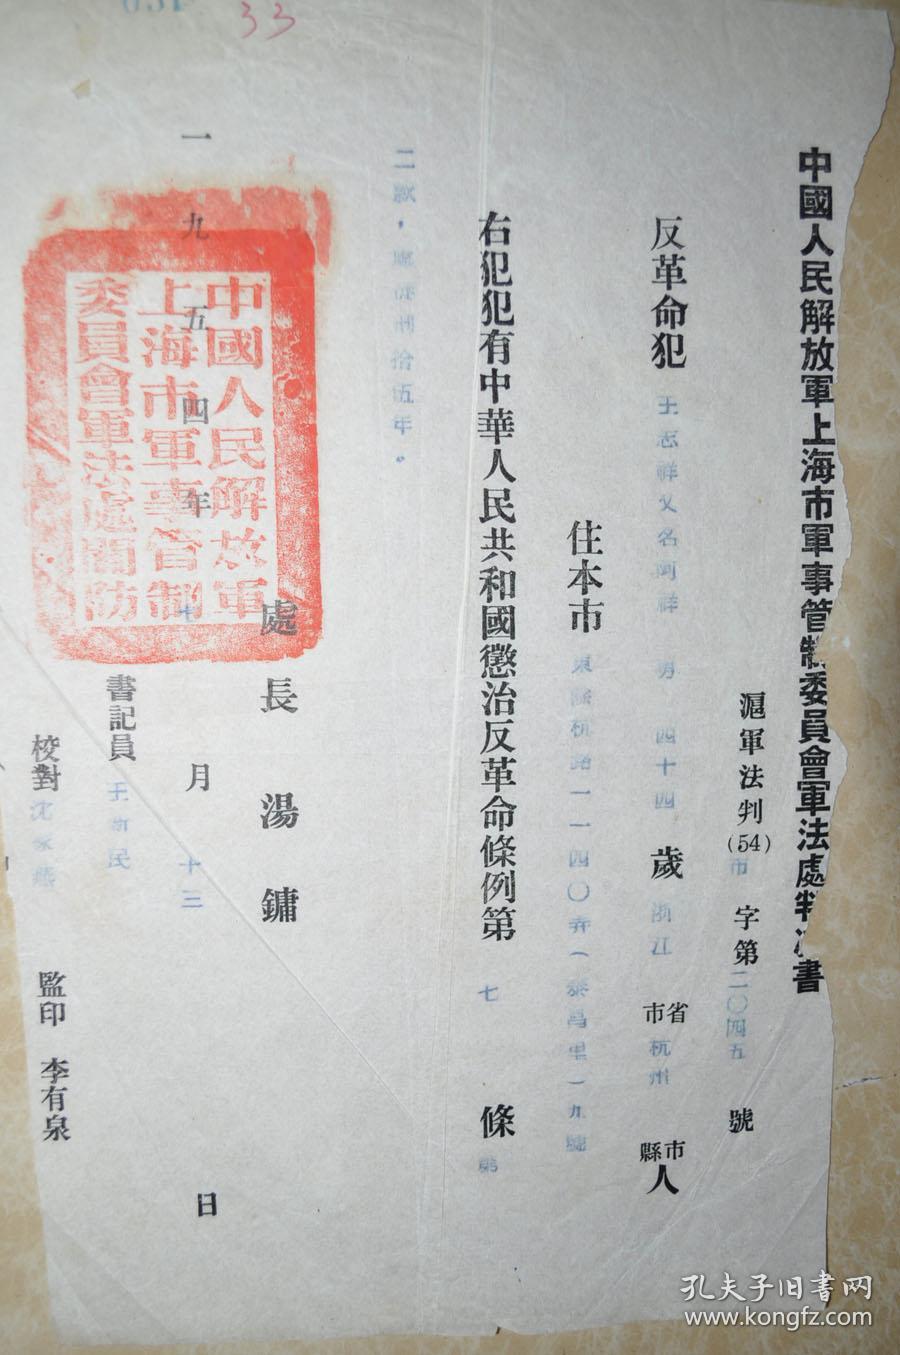 33
中國人民解放軍上海市軍事管制委員會軍法處判決書
滬軍法判(54)市字第二〇四五號
反革命犯 王志祥又名阿祥 男 四十四歲 浙江省市杭州市縣人
住本市 東餘杭路一一四〇弄(泰昌里)九號
右犯犯有中華人民共和國懲治反革命條例第七條第
二款，處徒刑拾伍年。
處長湯鏞
一九五四年七月十三日
書記員 王 民
校對 沈
監印 李有泉
中國人民解放軍
上海市軍事管制
委員會軍法處關防
孔夫子旧書网
www.kongfz.com